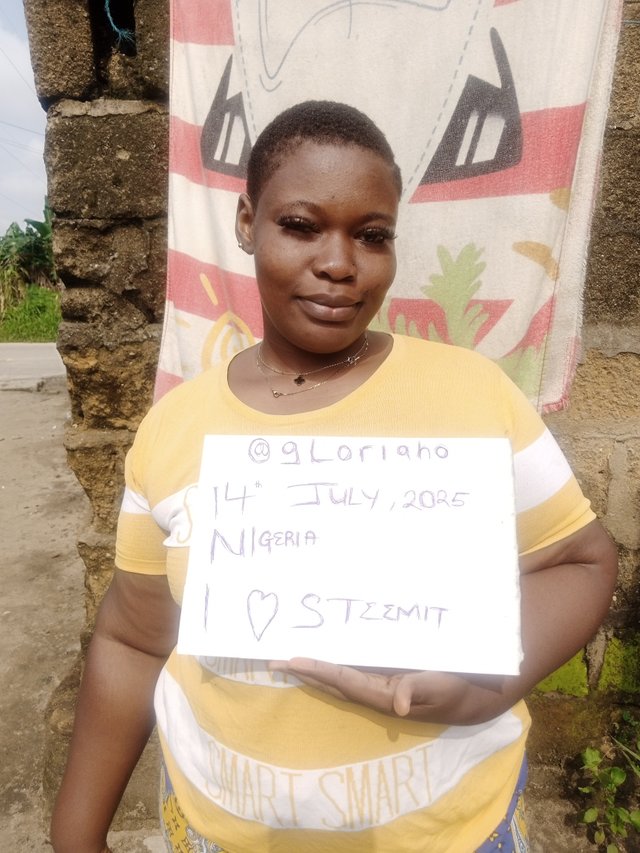 @gLoriaho
14th JULY, 2025
NIGERIA
I ♡ STEEMIT
SMART SMART